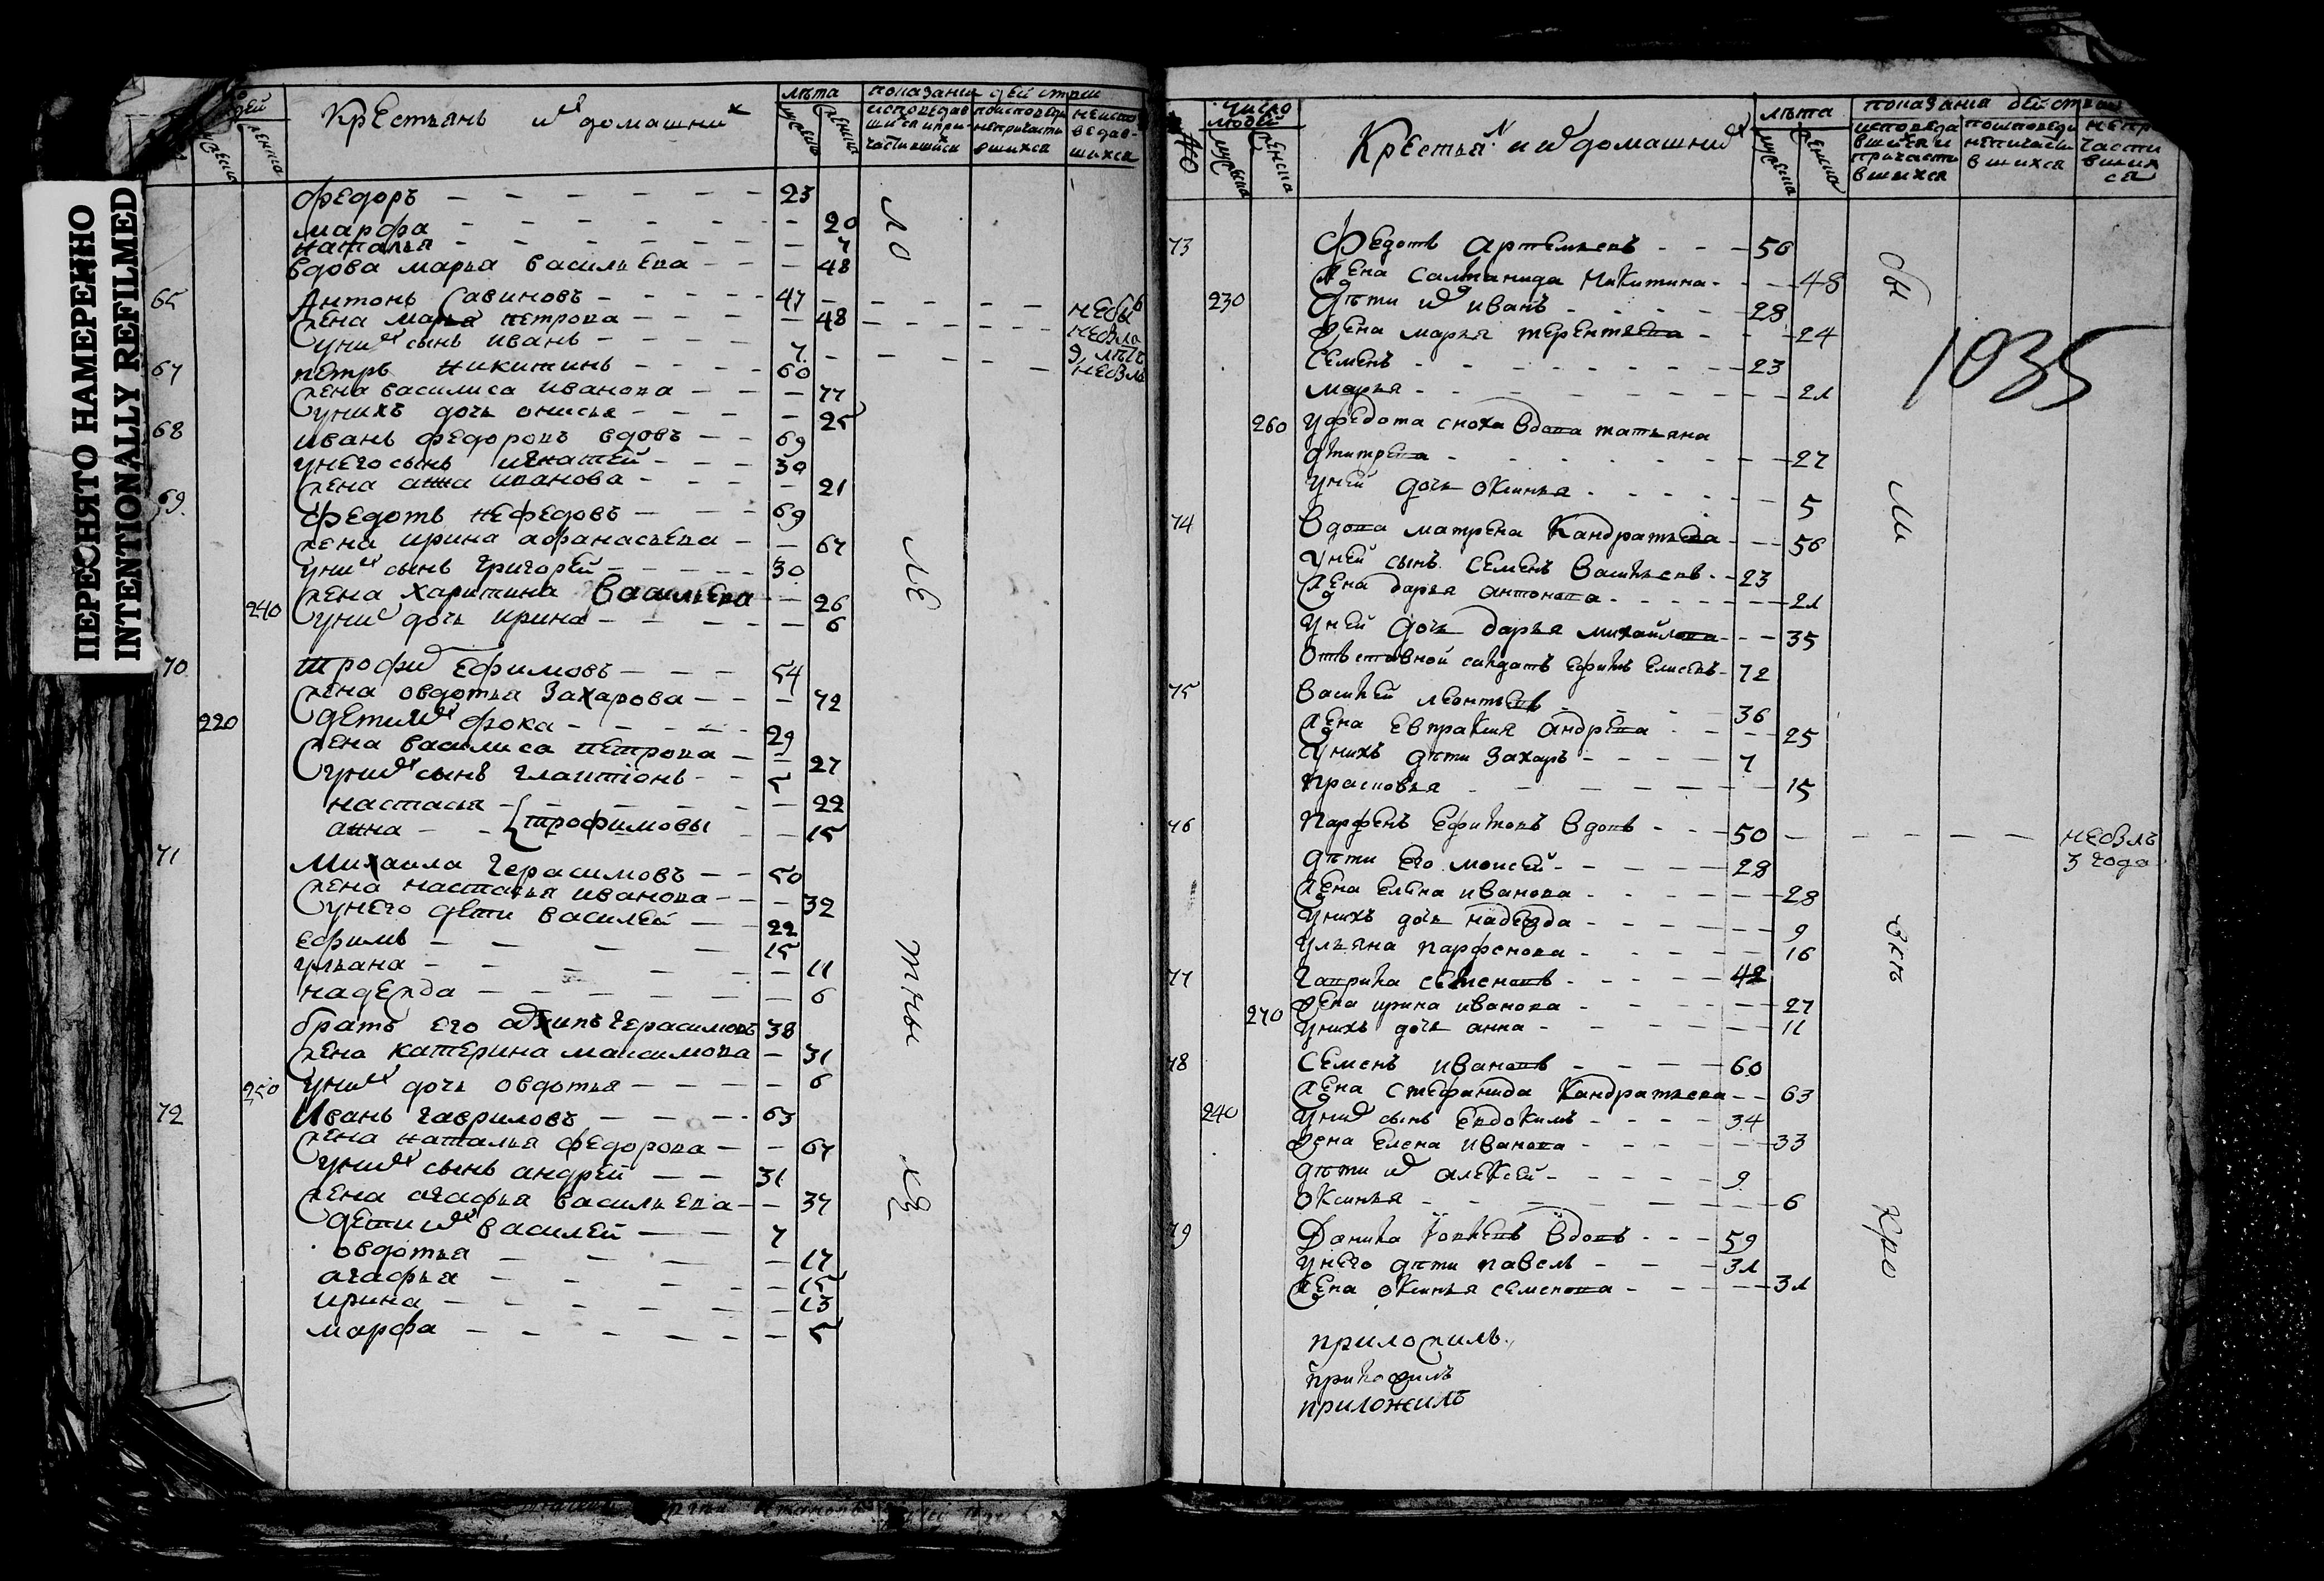 ПЕРЕСНЯТО НАМЕРЕННО
INTENTIONALLY REFILMED
Крестьянъ и домашних
лѣта
показании дей ствии
федоръ 23
марфа 20
наталья 7
вдова марья васильева 48
65 Антонъ Савиновъ 47 небы
жена марья петрова 48
у них сынъ иванъ 7 9 лѣтъ
67 петръ никитинъ 60
жена василиса иванова 77
у нихъ дочь онисья 25
68 иванъ федоровъ вдовъ 69
у него сынъ игнатей 30
жена анна иванова 21
69 федотъ нефедовъ 69
жена ирина афанасьева 67
у них сынъ григорей 30
жена харитина васильева 26
240 у них дочь ирина 6
70 трофим ефимовъ 54
жена овдотья захарова 72
220 дети их фока 29
жена василиса петрова 27
у них сынъ 5
настасья 22
анна трофимовы 15
71 михаила герасимовъ 50
жена настасья иванова 32
у него дети василей 22
ефимъ 15
ульана 11
надежда 6
братъ его архипъ герасимовъ 38
жена катерина максимова 31
250 у них дочь овдотья 6
72 иванъ гавриловъ 63
жена наталья федорова 67
у них сынъ андрей 31
жена агафья васильева 37
дети их василей 7
овдотья 17
агафья 15
ирина 13
марфа 5
ло
ле
тны
число людей
Крестьянъ и их домашних
лѣта
показания действии
73 Федотъ Артемьевъ 56
жена Никитина 48
230 дѣти их иванъ 28
жена марья терентьева 24
семенъ 23
марья 21
260 у федота сноха вдова татьяна
дмитрева 27
у ней дочь оксинья 5
74 вдова матрена Кандратьева 56
у ней сынъ семенъ васильевъ 23
жена дарья антонова 21
у ней дочь дарья михайлова 35
отставной салдатъ ефимъ елисевъ 72
75 василей леонтьевъ 36
жена евпраксия андрева 25
у нихъ дѣти захаръ 7
прасковья 15
76 парфенъ ефимовъ вдовъ 50 3 года
дѣти его моисей 28
жена елена иванова 28
у нихъ дочь надежда 9
ульяна парфенова 16
77 гаврила семеновъ 42
жена ирина иванова 27
270 у нихъ дочь анна 11
78 семенъ ивановъ 60
жена стефанида Кандратьева 63
240 у них сынъ евдокимъ 34
жена елена иванова 33
дѣти их алексей 9
оксинья 6
79 данила вдовъ 59
у него дѣти павелъ 31
жена оксинья семенова 31
приложилъ
приложилъ
приложилъ
1035